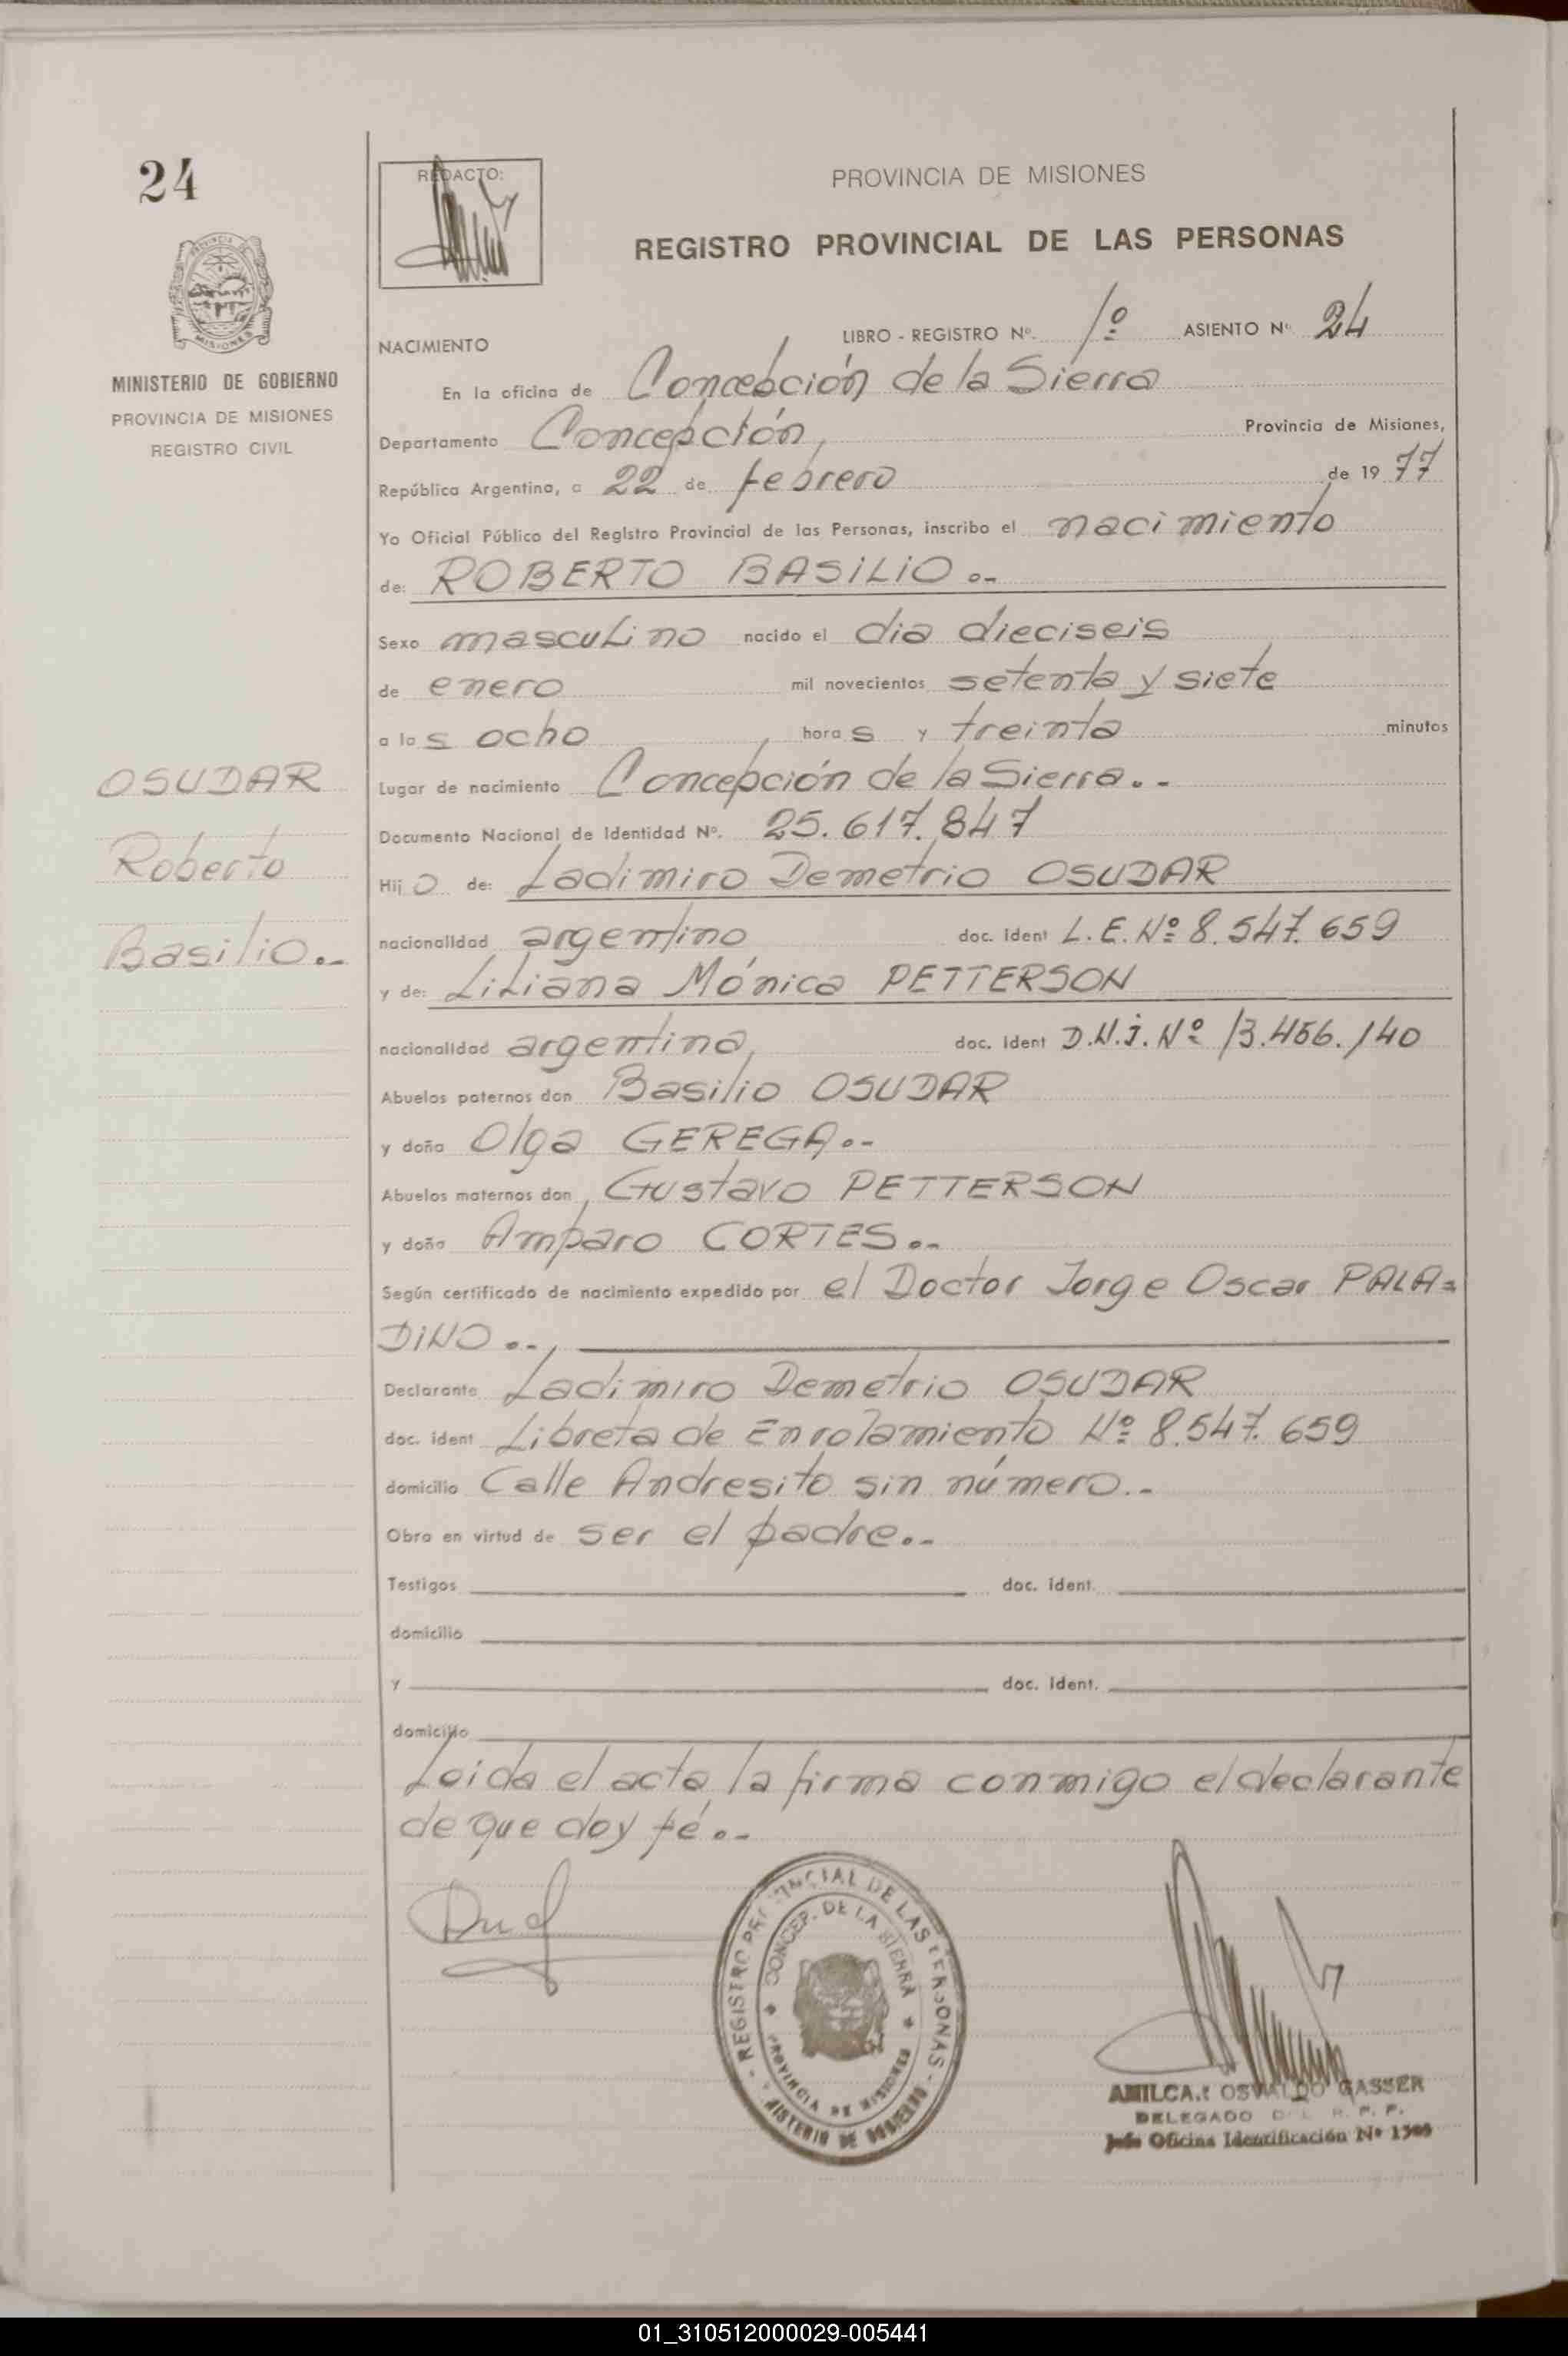 24
MINISTERIO DE GOBIERNO
PROVINCIA DE MISIONES
REGISTRO CIVIL
OSUDAR
Roberto
Basilio.-
REDACTO:
PROVINCIA DE MISIONES
REGISTRO PROVINCIAL DE LAS PERSONAS
NACIMIENTO LIBRO - REGISTRO Nº. 1º ASIENTO Nº 24
En la oficina de Concepción de la Sierra
Departamento Concepción, Provincia de Misiones,
República Argentina, a 22 de febrero de 1977
Yo Oficial Público del Registro Provincial de las Personas, inscribo el nacimiento
de: ROBERTO BASILIO.-
Sexo masculino nacido el dia dieciseis
de enero mil novecientos setenta y siete
a las ocho horas y treinta minutos
Lugar de nacimiento Concepción de la Sierra.-
Documento Nacional de Identidad Nº. 25.617.847
Hijo de: Ladimiro Demetrio OSUDAR
nacionalidad argentino doc. ident L.E. Nº 8.547.659
y de: Liliana Mónica PETTERSON
nacionalidad argentina, doc. ident D.N.I. Nº 13.456.140
Abuelos paternos don Basilio OSUDAR
y doña Olga GEREGA.-
Abuelos maternos don Gustavo PETTERSON
y doña Amparo CORTES.-
Según certificado de nacimiento expedido por el Doctor Jorge Oscar PALA=
DINO.-
Declarante Ladimiro Demetrio OSUDAR
doc. ident Libreta de Enrolamiento Nº 8.547.659
domicilio Calle Andresito sin número.-
Obra en virtud de ser el padre.-
Testigos doc. ident.
domicilio
y doc. ident.
domicilio
Leida el acta, la firma conmigo el declarante
de que doy fé.-
REGISTRO PROVINCIAL DE LAS PERSONAS - MINISTERIO DE GOBIERNO
CONCEP. DE LA SIERRA
PROVINCIA DE MISIONES
AMILCAR OSVALDO GASSER
DELEGADO DEL R. P. P.
Jefe Oficina Identificación Nº 1509
01_310512000029-005441